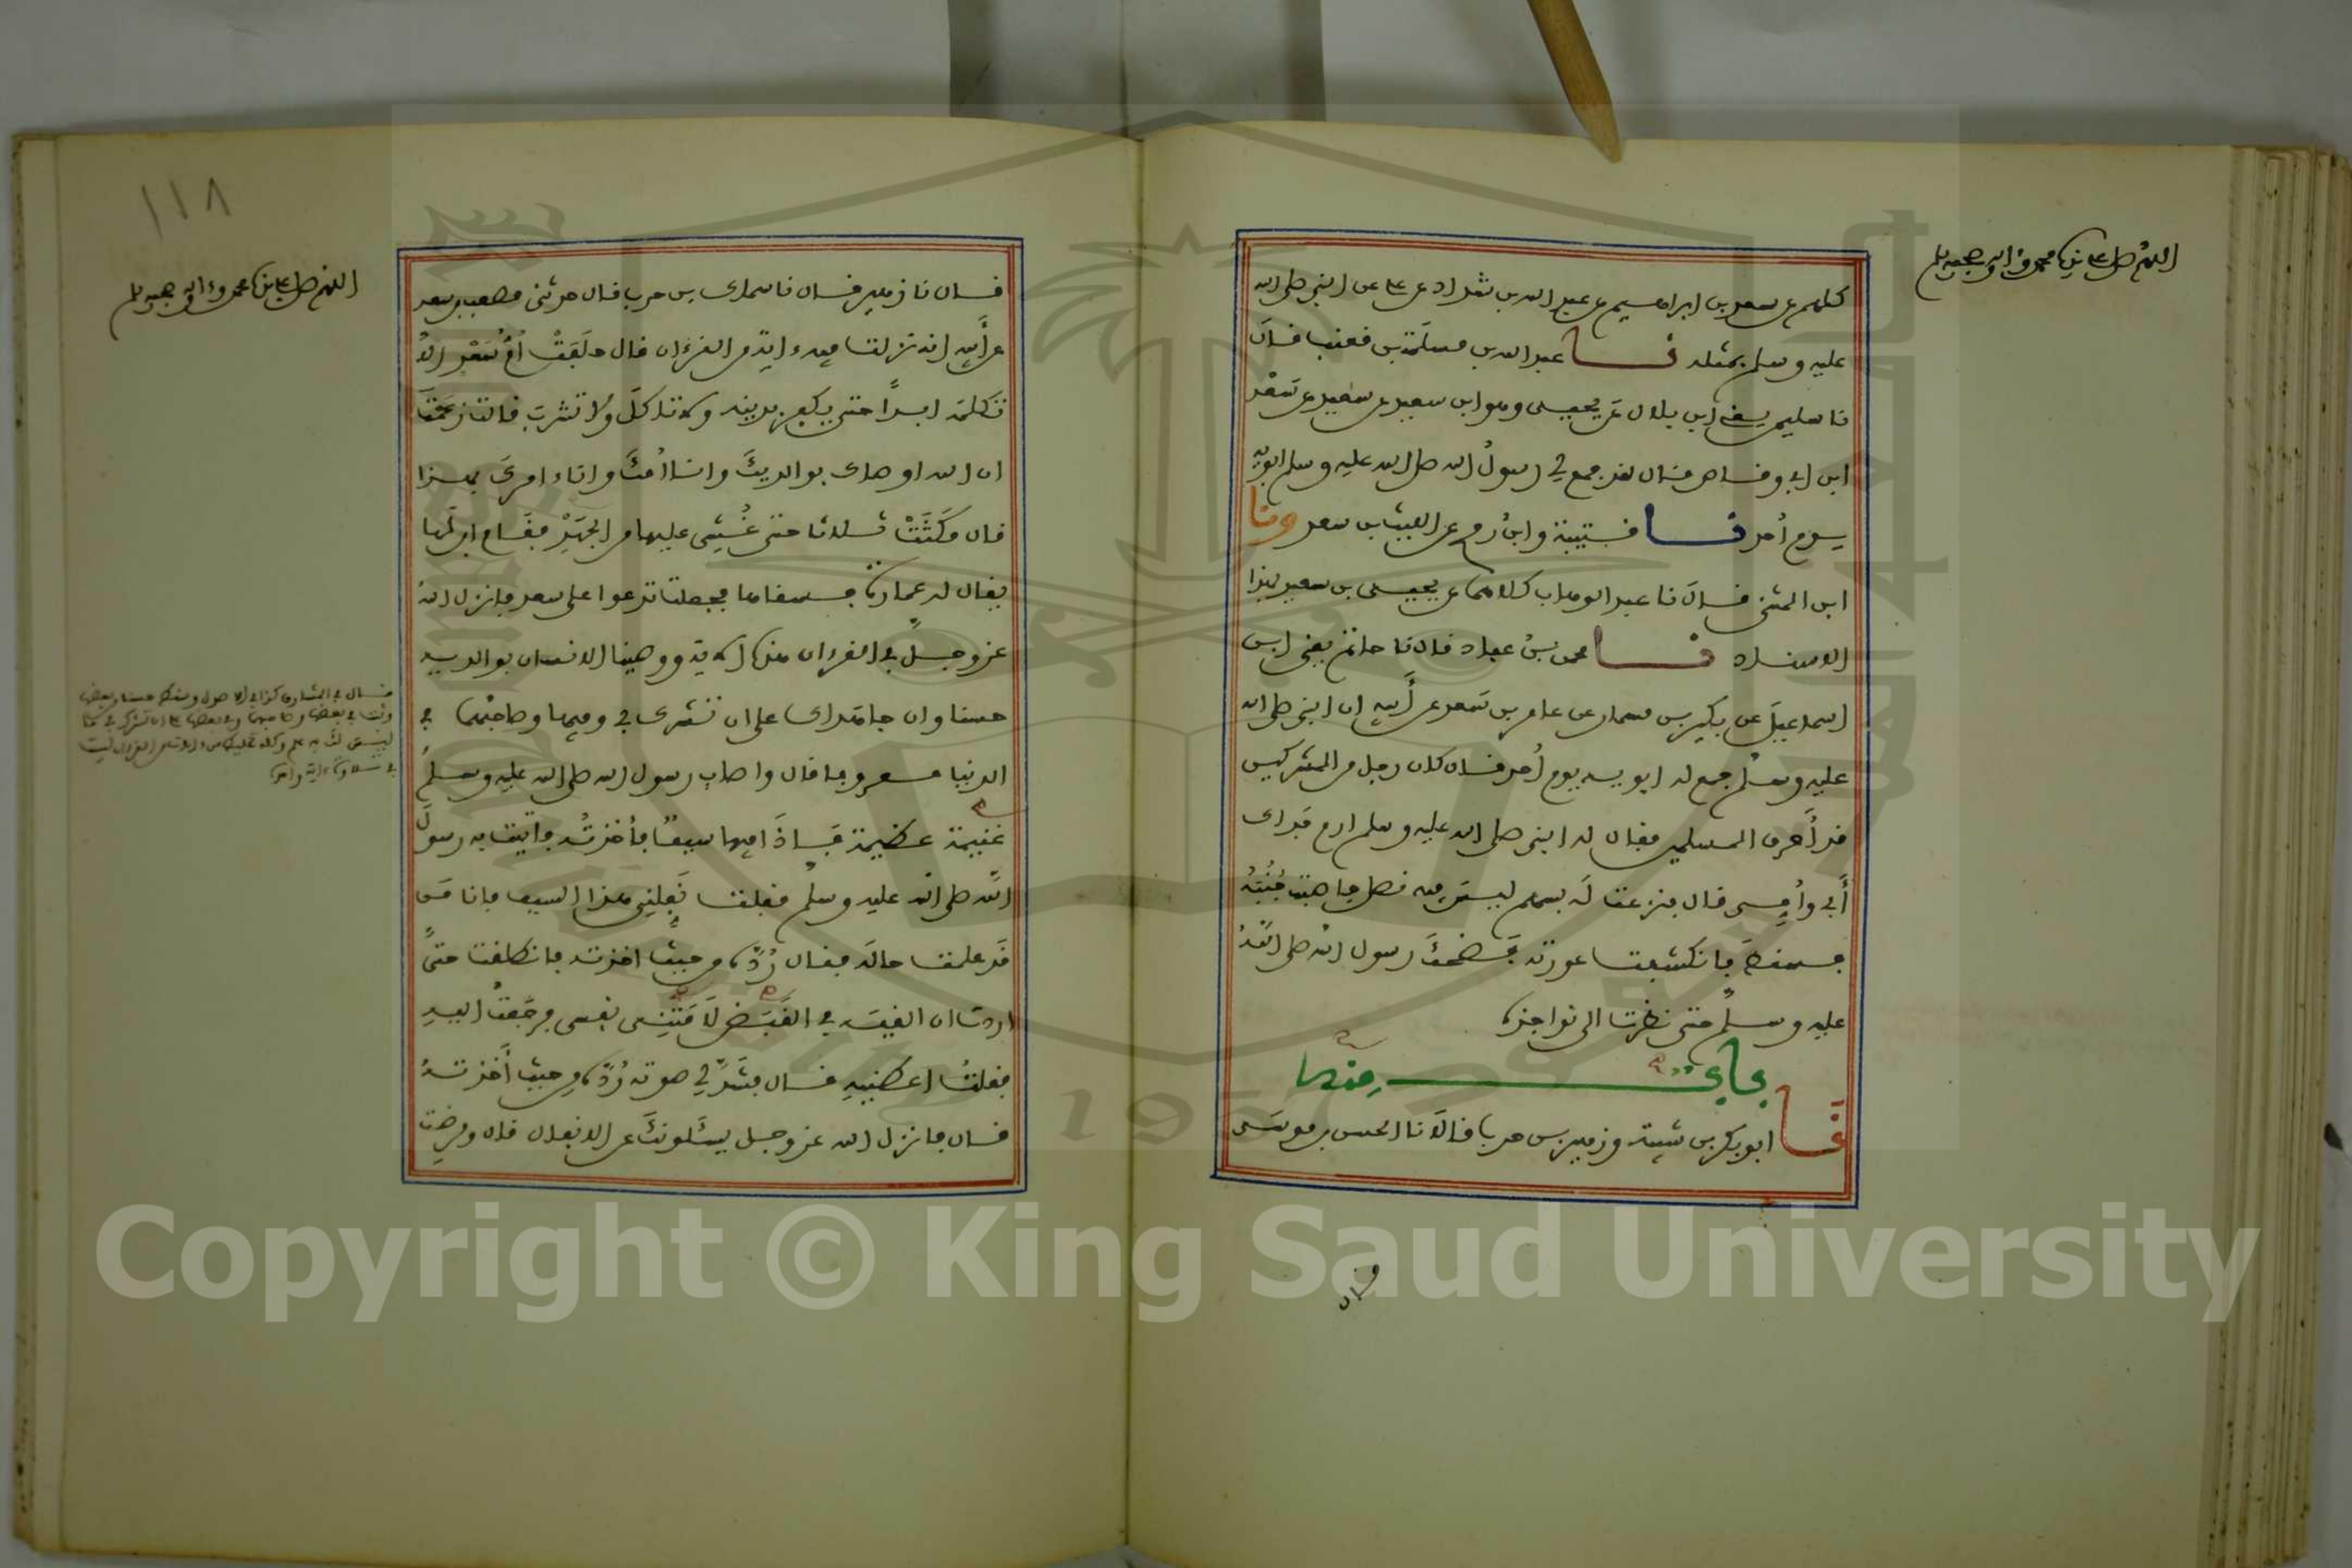 اللهم صل على نبينا محمد وءاله وصحبه وسلم
كلهم عن سعد بن ابراهيم عن عبد الله بن شداد عن علي عن النبي صلى الله
عليه وسلم بمثله نا عبد الله بن مسلمة بن قعنب قال
نا سليمن يعني ابن بلال عن يحيى وهو ابن سعيد عن سعيد عن سعد
ابن ابي وقاص قال لقد جمع لي رسول الله صلى الله عليه وسلم ابويه
يوم أحد نا قتيبة وابن رمح عن الليث بن سعد ونا
ابن المثنى قال نا عبد الوهاب كلاهما عن يحيى بن سعيد بهذا
الاسناد نا محمد بن عباد قال نا حاتم يعني ابن
اسماعيل عن بكير بن مسمار عن عامر بن سعد عن أبيه ان النبي صلى الله
عليه وسلم جمع له ابويه يوم أحد قال كان رجل من المشركين
قد أحرق المسلمين فقال له النبي صلى الله عليه وسلم ارم فداك
أبي وأمي قال فنزعت له بسهم ليس فيه نصل فاصبت جنبه
فسقط فانكشفت عورته فضحك رسول الله صلى الله
عليه وسلم حتى نظرت الى نواجذه
باب منه
نا ابو بكر بن شيبة وزهير بن حرب قالا نا الحسن بن موسى
قال
١١٨
اللهم صل على نبينا محمد وءاله وصحبه وسلم
قال نا زهير قال نا سماك بن حرب قال حدثني مصعب بن سعد
عن أبيه انه نزلت فيه ءايت من القرءان قال حلفت أم سعد الا
تكلمه ابدا حتى يكفر بدينه ولا تاكل ولا تشرب قالت زعمت
ان الله اوصاك بوالديك وانا أمك وانا ءامرك بهذا
قال مكثت ثلاثا حتى غشي عليها من الجهد فقام ابن لها
يقال له عمارة فسقاها فجعلت تدعوا على سعد فانزل الله
عز وجل في القرءان هذه الاية ووصينا الانسان بوالديه
حسنا وان جاهداك على ان تشرك بي وفيها وصاحبهما في
الدنيا معروفا قال واصاب رسول الله صلى الله عليه وسلم
غنيمة عظيمة فإذا فيها سيف فأخذته فأتيت به رسول
الله صلى الله عليه وسلم فقلت نفلني هذا السيف فانا من
قد علمت حاله فقال رده من حيث اخذته فانطلقت حتى
اردت ان القيه في القبض لامتني نفسي فرجعت اليه
فقلت اعطنيه قال فشد لي صوته رده من حيث أخذته
قال فانزل الله عز وجل يسئلونك عن الانفال قال ومرضت
Copyright © King Saud University
1957